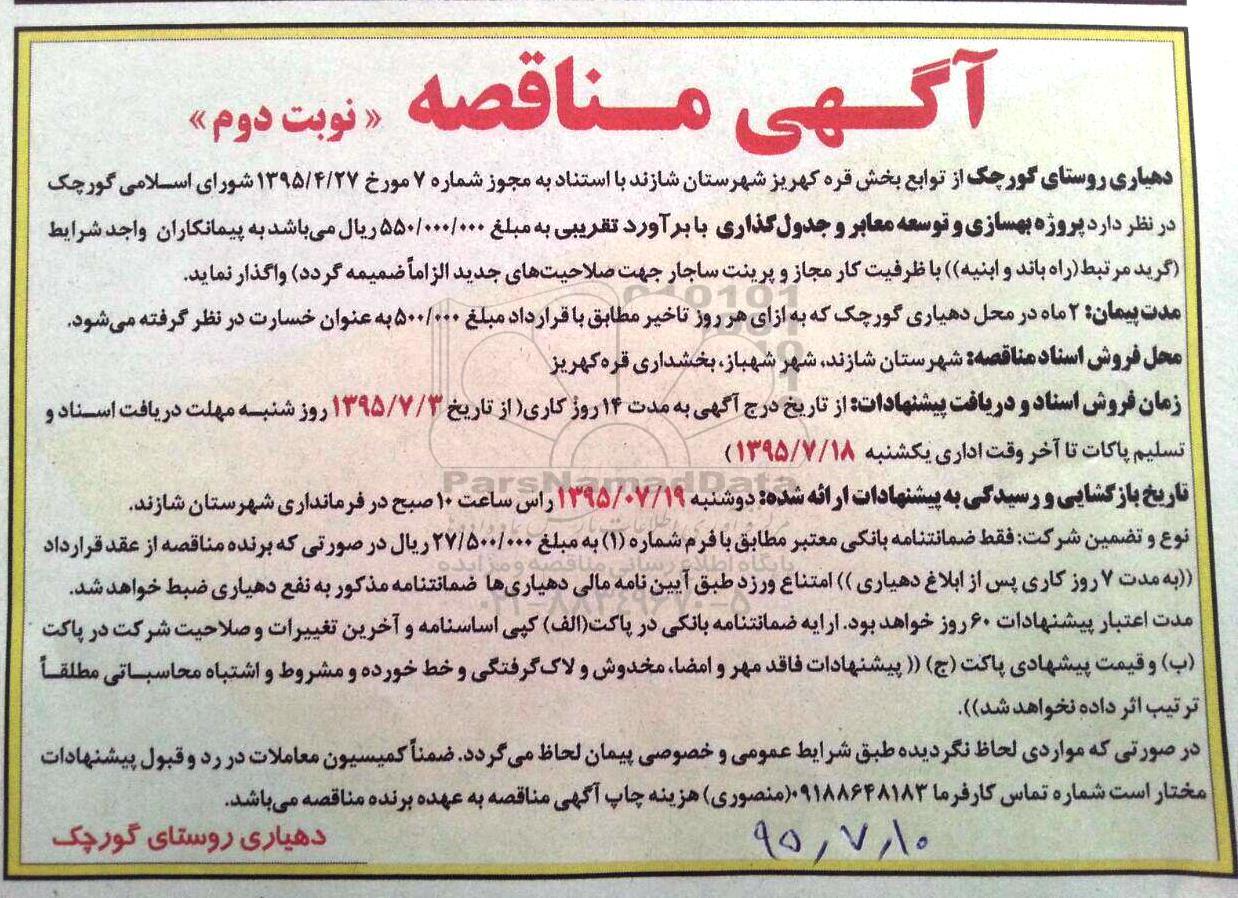 آگهی مناقصه « نوبت دوم »
دهیاری روستای گورچک از توابع بخش قره کهریز شهرستان شازند با استناد به مجوز شماره ۷ مورخ ۱۳۹۵/۴/۲۷ شورای اسلامی گورچک
در نظر دارد پروژه بهسازی و توسعه معابر و جدول گذاری با برآورد تقریبی به مبلغ ۵۵۰/۰۰۰/۰۰۰ ریال می‌باشد به پیمانکاران واجد شرایط
(گرید مرتبط(راه باند و ابنیه)) با ظرفیت کار مجاز و پرینت ساجار جهت صلاحیت‌های جدید الزاماً ضمیمه گردد) واگذار نماید.
مدت پیمان: ۲ ماه در محل دهیاری گورچک که به ازای هر روز تاخیر مطابق با قرارداد مبلغ ۵۰۰/۰۰۰ به عنوان خسارت در نظر گرفته می‌شود.
محل فروش اسناد مناقصه: شهرستان شازند، شهر شهباز، بخشداری قره‌کهریز
زمان فروش اسناد و دریافت پیشنهادات: از تاریخ درج آگهی به مدت ۱۴ روز کاری( از تاریخ ۱۳۹۵/۷/۳ روز شنبه مهلت دریافت اسناد و
تسلیم پاکات تا آخر وقت اداری یکشنبه ۱۳۹۵/۷/۱۸ )
تاریخ بازگشایی و رسیدگی به پیشنهادات ارائه شده: دوشنبه ۱۳۹۵/۰۷/۱۹ راس ساعت ۱۰ صبح در فرمانداری شهرستان شازند.
نوع و تضمین شرکت: فقط ضمانتنامه بانکی معتبر مطابق با فرم شماره (۱) به مبلغ ۲۷/۵۰۰/۰۰۰ ریال در صورتی که برنده مناقصه از عقد قرارداد
((به مدت ۷ روز کاری پس از ابلاغ دهیاری )) امتناع ورزد طبق آیین نامه مالی دهیاری‌ها ضمانتنامه مذکور به نفع دهیاری ضبط خواهد شد.
مدت اعتبار پیشنهادات ۶۰ روز خواهد بود. ارایه ضمانتنامه بانکی در پاکت(الف) کپی اساسنامه و آخرین تغییرات و صلاحیت شرکت در پاکت
(ب) و قیمت پیشهادی پاکت (ج) (( پیشنهادات فاقد مهر و امضا، مخدوش و لاک گرفتگی و خط خورده و مشروط و اشتباه محاسباتی مطلقاً
ترتیب اثر داده نخواهد شد)).
در صورتی که مواردی لحاظ نگردیده طبق شرایط عمومی و خصوصی پیمان لحاظ می‌گردد. ضمناً کمیسیون معاملات در رد و قبول پیشنهادات
مختار است شماره تماس کارفرما ۰۹۱۸۸۶۴۸۱۸۳(منصوری) هزینه چاپ آگهی مناقصه به عهده برنده مناقصه می‌باشد.
دهیاری روستای گورچک
۹۵٫۷٫۱۰
ParsNamadData
پایگاه اطلاع رسانی مناقصه و مزایده
۰۲۱-۸۸۳۴۹۶۷۰-۵